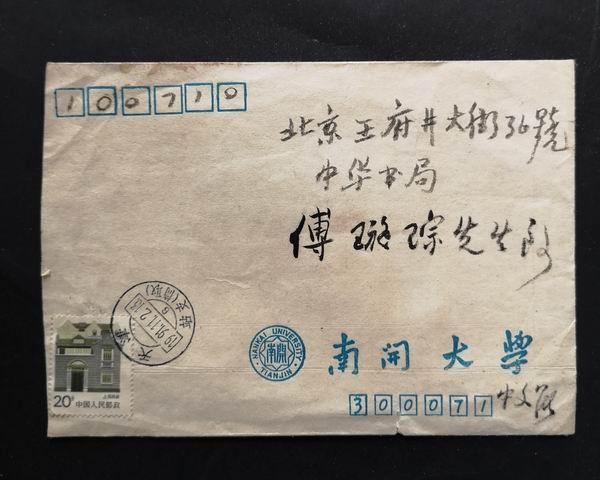 100710
北京王府井大街36號
中华书局
傅璇琮先生
天津
上海民居
20分 中国人民邮政
NANKAI UNIVERSITY
南開
TIANJIN
南開大學
300071 中文系